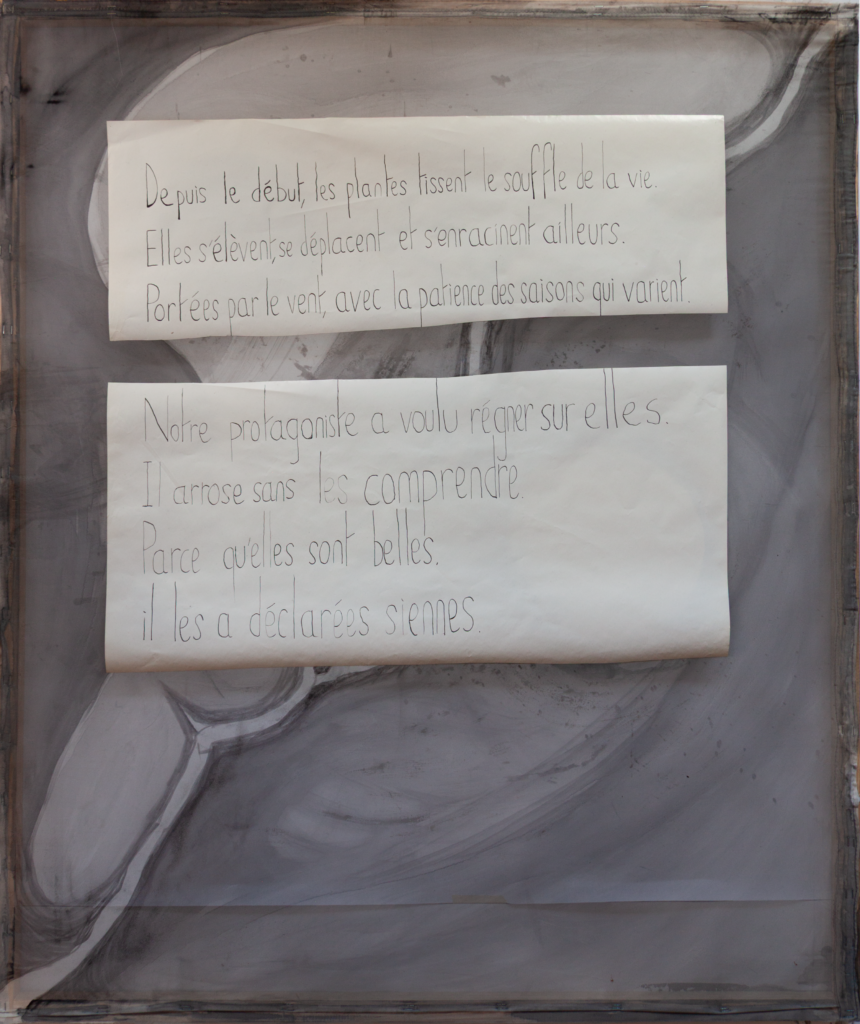 Depuis le début, les plantes tissent le souffle de la vie.
Elles s'élèvent, se déplacent et s'enracinent ailleurs.
Portées par le vent, avec la patience des saisons qui varient.
Notre protagoniste a voulu régner sur elles.
Il arrose sans les comprendre.
Parce qu'elles sont belles.
il les a déclarées siennes.